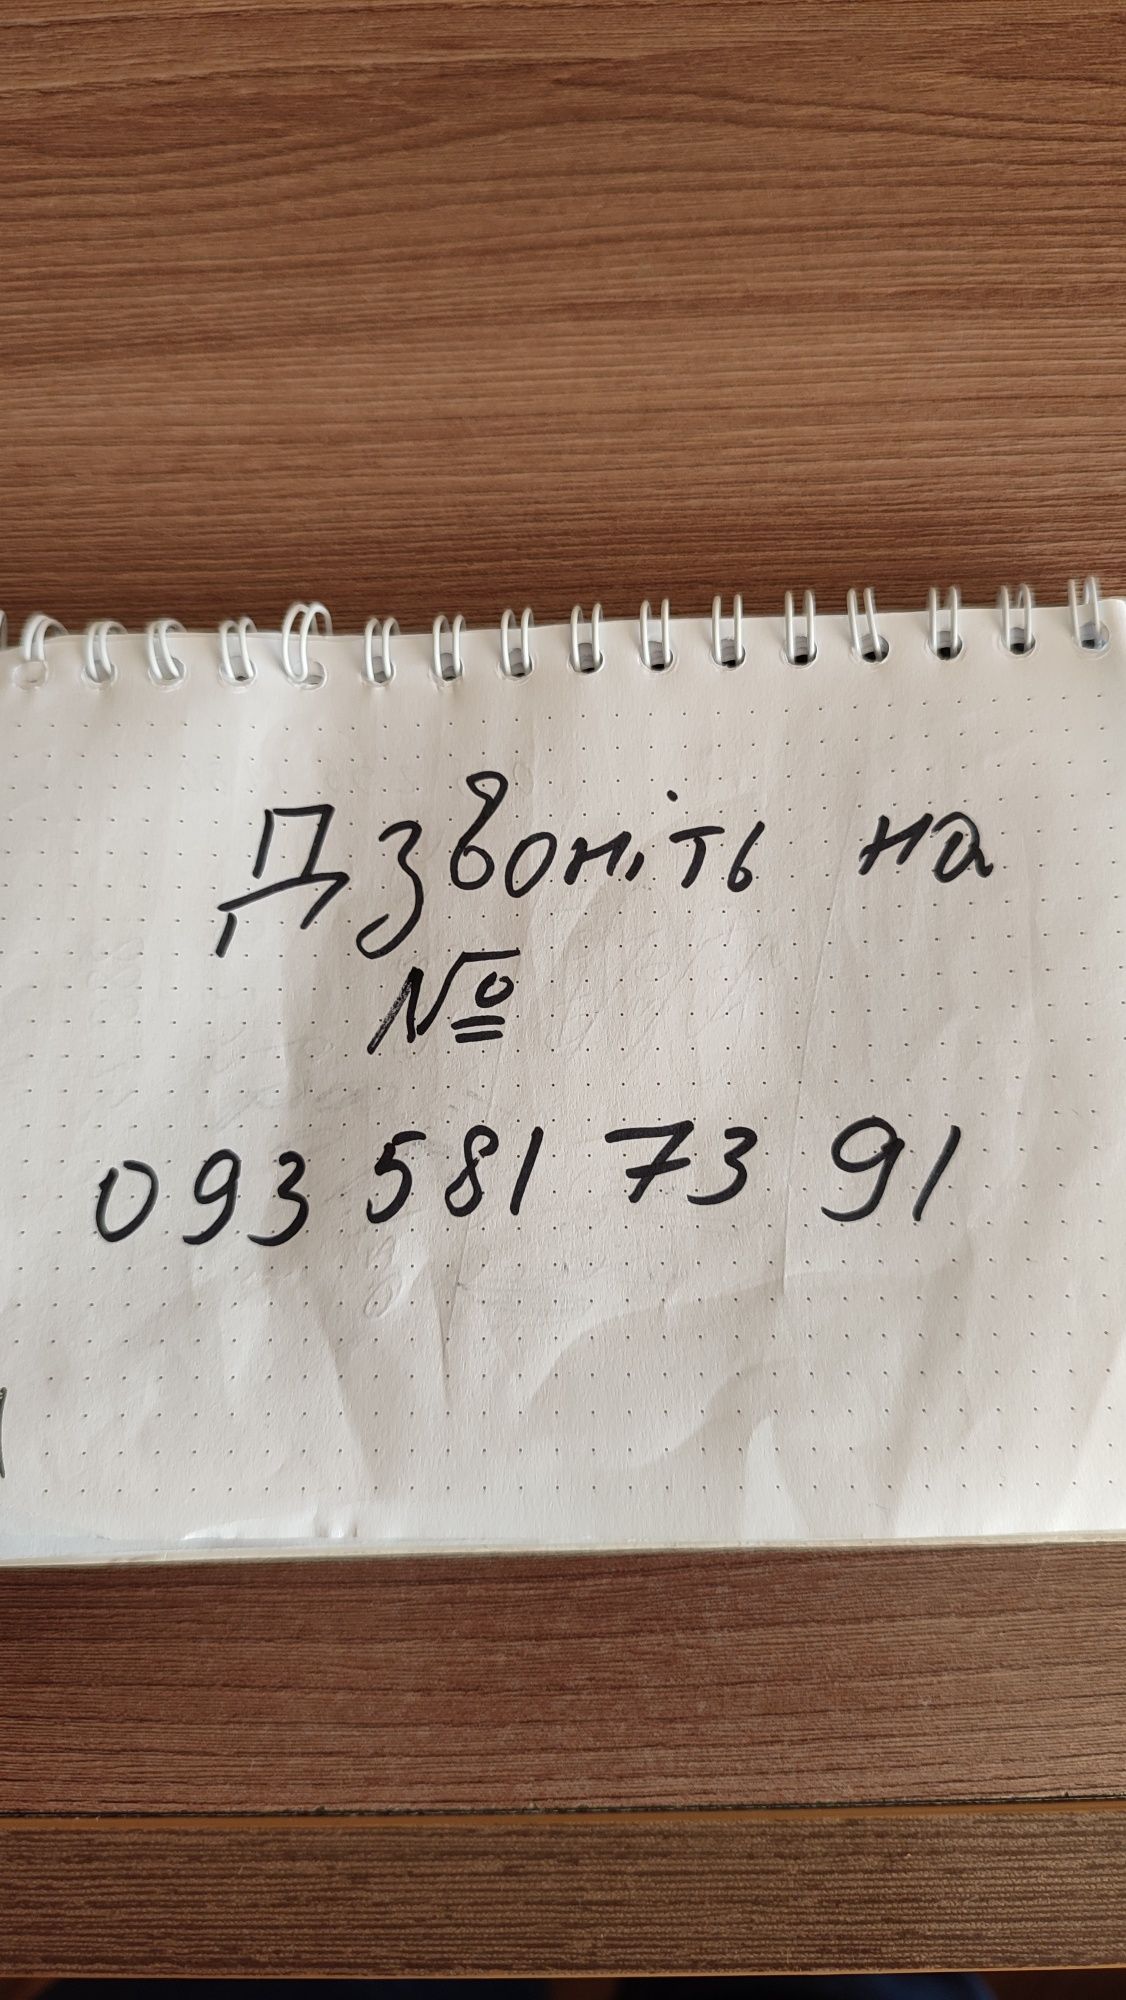 Дзвоніть на
№
093 581 73 91